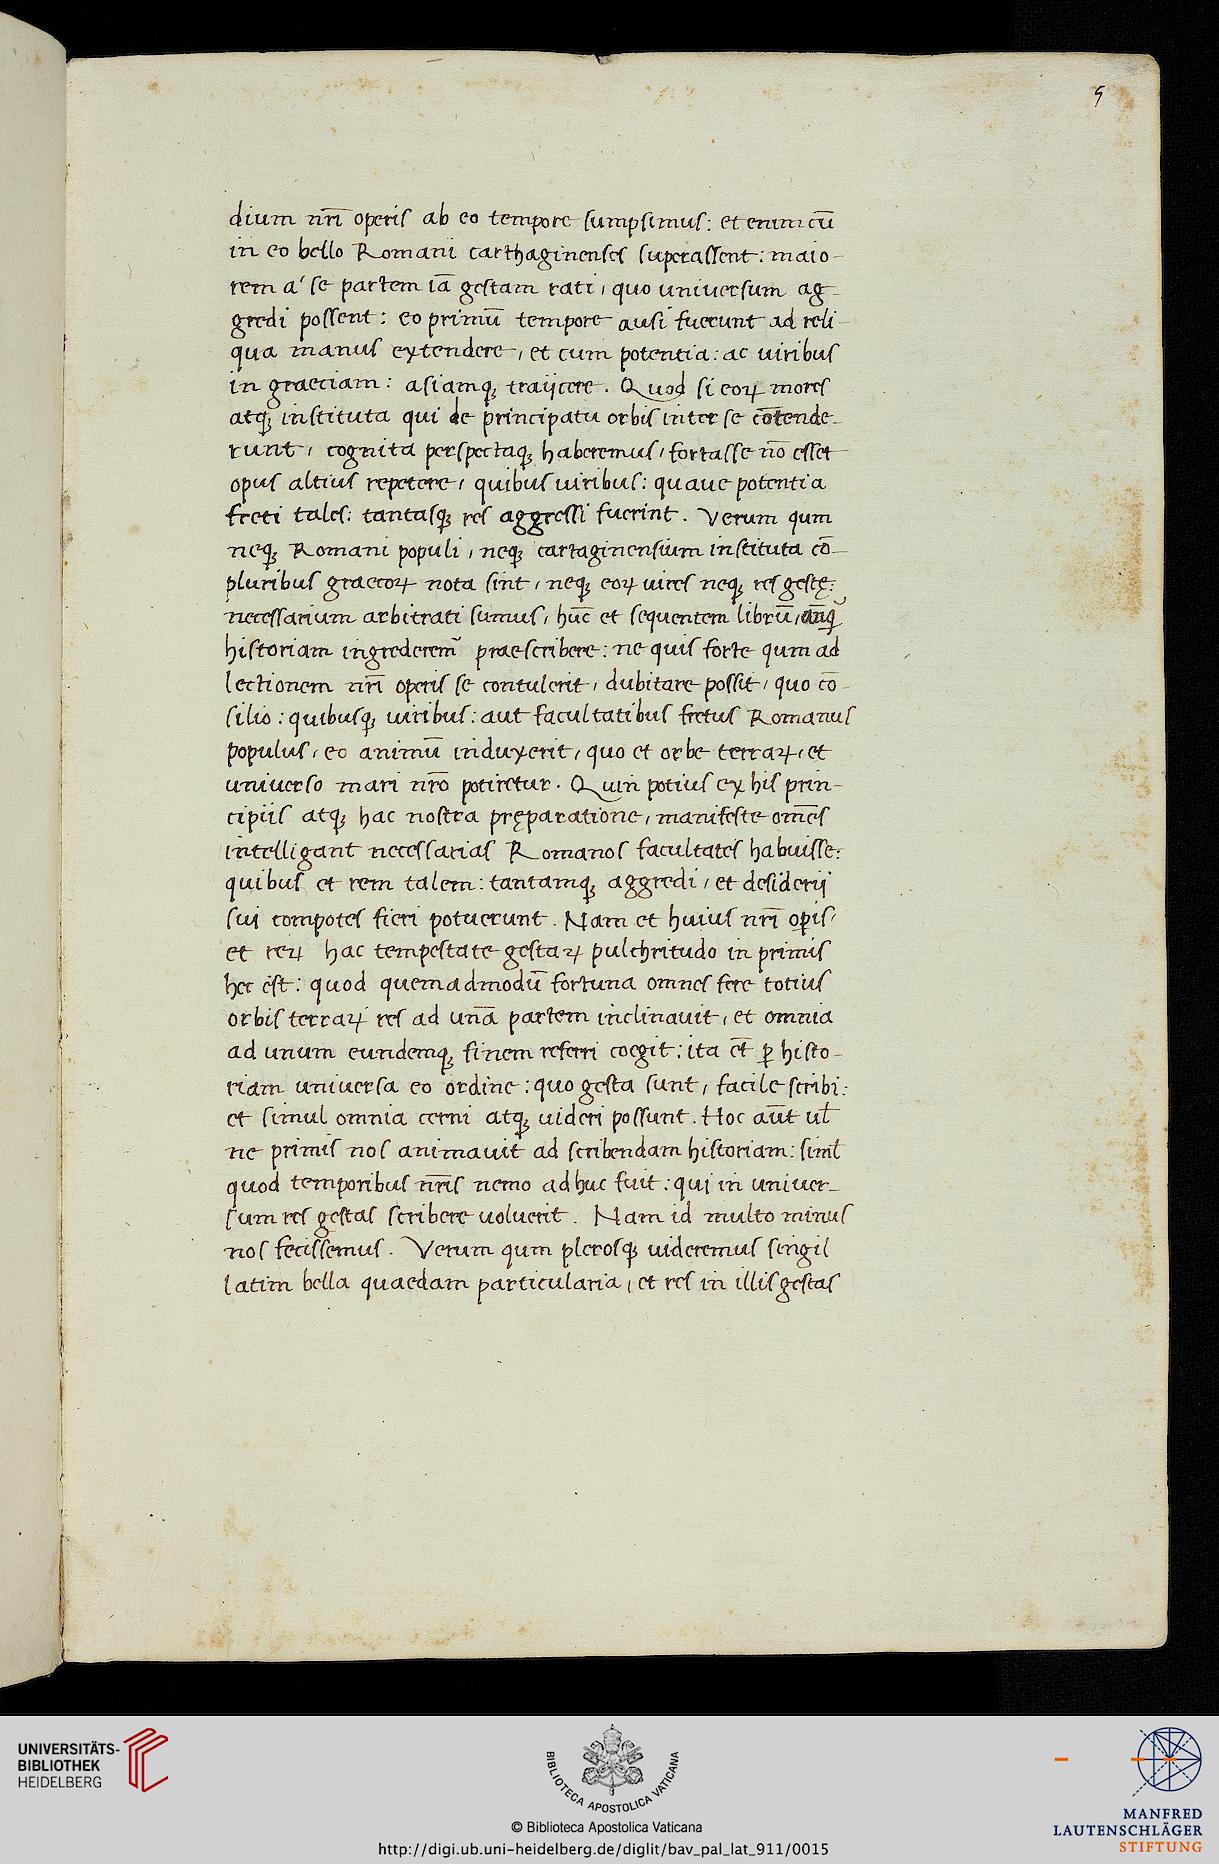 5
dium nr̄i operis ab eo tempore sumpsimus: et enim cū
in eo bello Romani carthaginenses superassent: maio-
rem a' se partem iā gestam rati, quo universum ag-
gredi possent: eo primū tempore ausi fuerunt ad reli-
qua manus extendere, et cum potentia: ac viribus
in graeciam: asiamq; traijcere. Quod si eoꝝ mores
atq; instituta qui de principatu orbis inter se cōtende-
runt, cognita perspectaq; haberemus, fortasse nō esset
opus altius repetere, quibus viribus: quave potentia
freti tales: tantasq; res aggressi fuerint. Verum qum
neq; Romani populi, neq; cartaginensium instituta cō-
pluribus graecoꝝ nota sint, neq; eoꝝ vires neq; res gestę:
necessarium arbitrati sumus, hūc et sequentem librū, anq̄
historiam ingrederem̃ praescribere: ne quis forte qum ad
lectionem nr̄i operis se contulerit, dubitare possit, quo cō-
silio: quibusq; viribus: aut facultatibus fretus Romanus
populus, eo animū induxerit, quo et orbe terraꝝ, et
universo mari nr̄o potiretur. Quin potius ex his prin-
cipiis atq; hac nostra pręparatione, manifeste om̄es
intelligant necessarias Romanos facultates habuisse:
quibus et rem talem: tantamq; aggredi, et desiderij
sui compotes fieri potuerunt. Nam et huius nr̄i oꝑis,
et reꝝ hac tempestate gestaꝝ pulchritudo in primis
hec est: quod quemadmodū fortuna omnes fere totius
orbis terraꝝ res ad unā partem inclinavit, et omnia
ad unum eundemq; finem referri coegit: ita et̄ ꝑ histo-
riam universa eo ordine: quo gesta sunt, facile scribi:
et simul omnia cerni atq; videri possunt. Hoc aūt vel
ne primis nos animavit ad scribendam historiam: siml̄
quod temporibus nr̄is nemo adhuc fuit: qui in univer-
sum res gestas scribere voluerit. Nam id multo minus
nos fecissemus. Verum qum plerosq; videremus singil
latim bella quaedam particularia, et res in illis gestas
UNIVERSITÄTS-
BIBLIOTHEK
HEIDELBERG
BIBLIOTECA APOSTOLICA VATICANA
© Biblioteca Apostolica Vaticana
http://digi.ub.uni-heidelberg.de/diglit/bav_pal_lat_911/0015
MANFRED
LAUTENSCHLÄGER
STIFTUNG